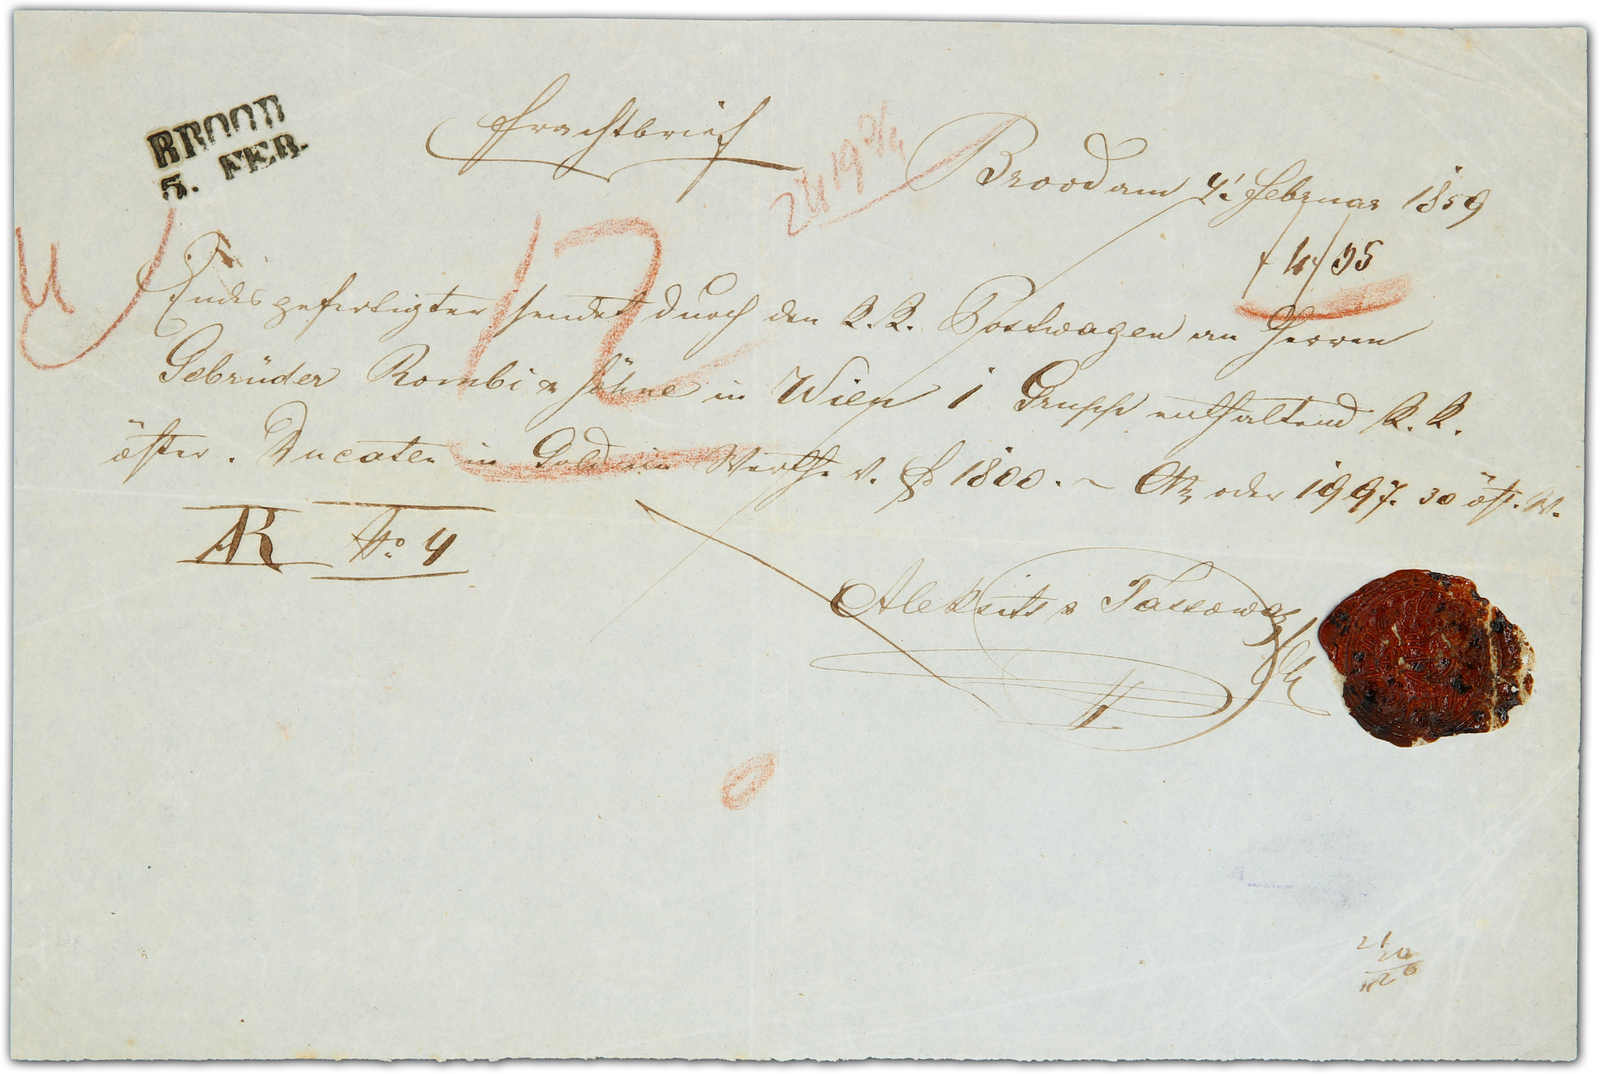 BROOD
5. FEB.
Frachtbrief
Brood am 4t. Februar 1859
Endesgefertigter sendet durch den K.K. Postwagen an Herren
Gebrüder Rombi & Söhne in Wien 1 Gruppe enthaltend K.K.
öster. Ducaten in Gold im Werthe v. f 1800.~ CM oder 1997.30 öst. W.
AR No. 4
Aleksits &
12